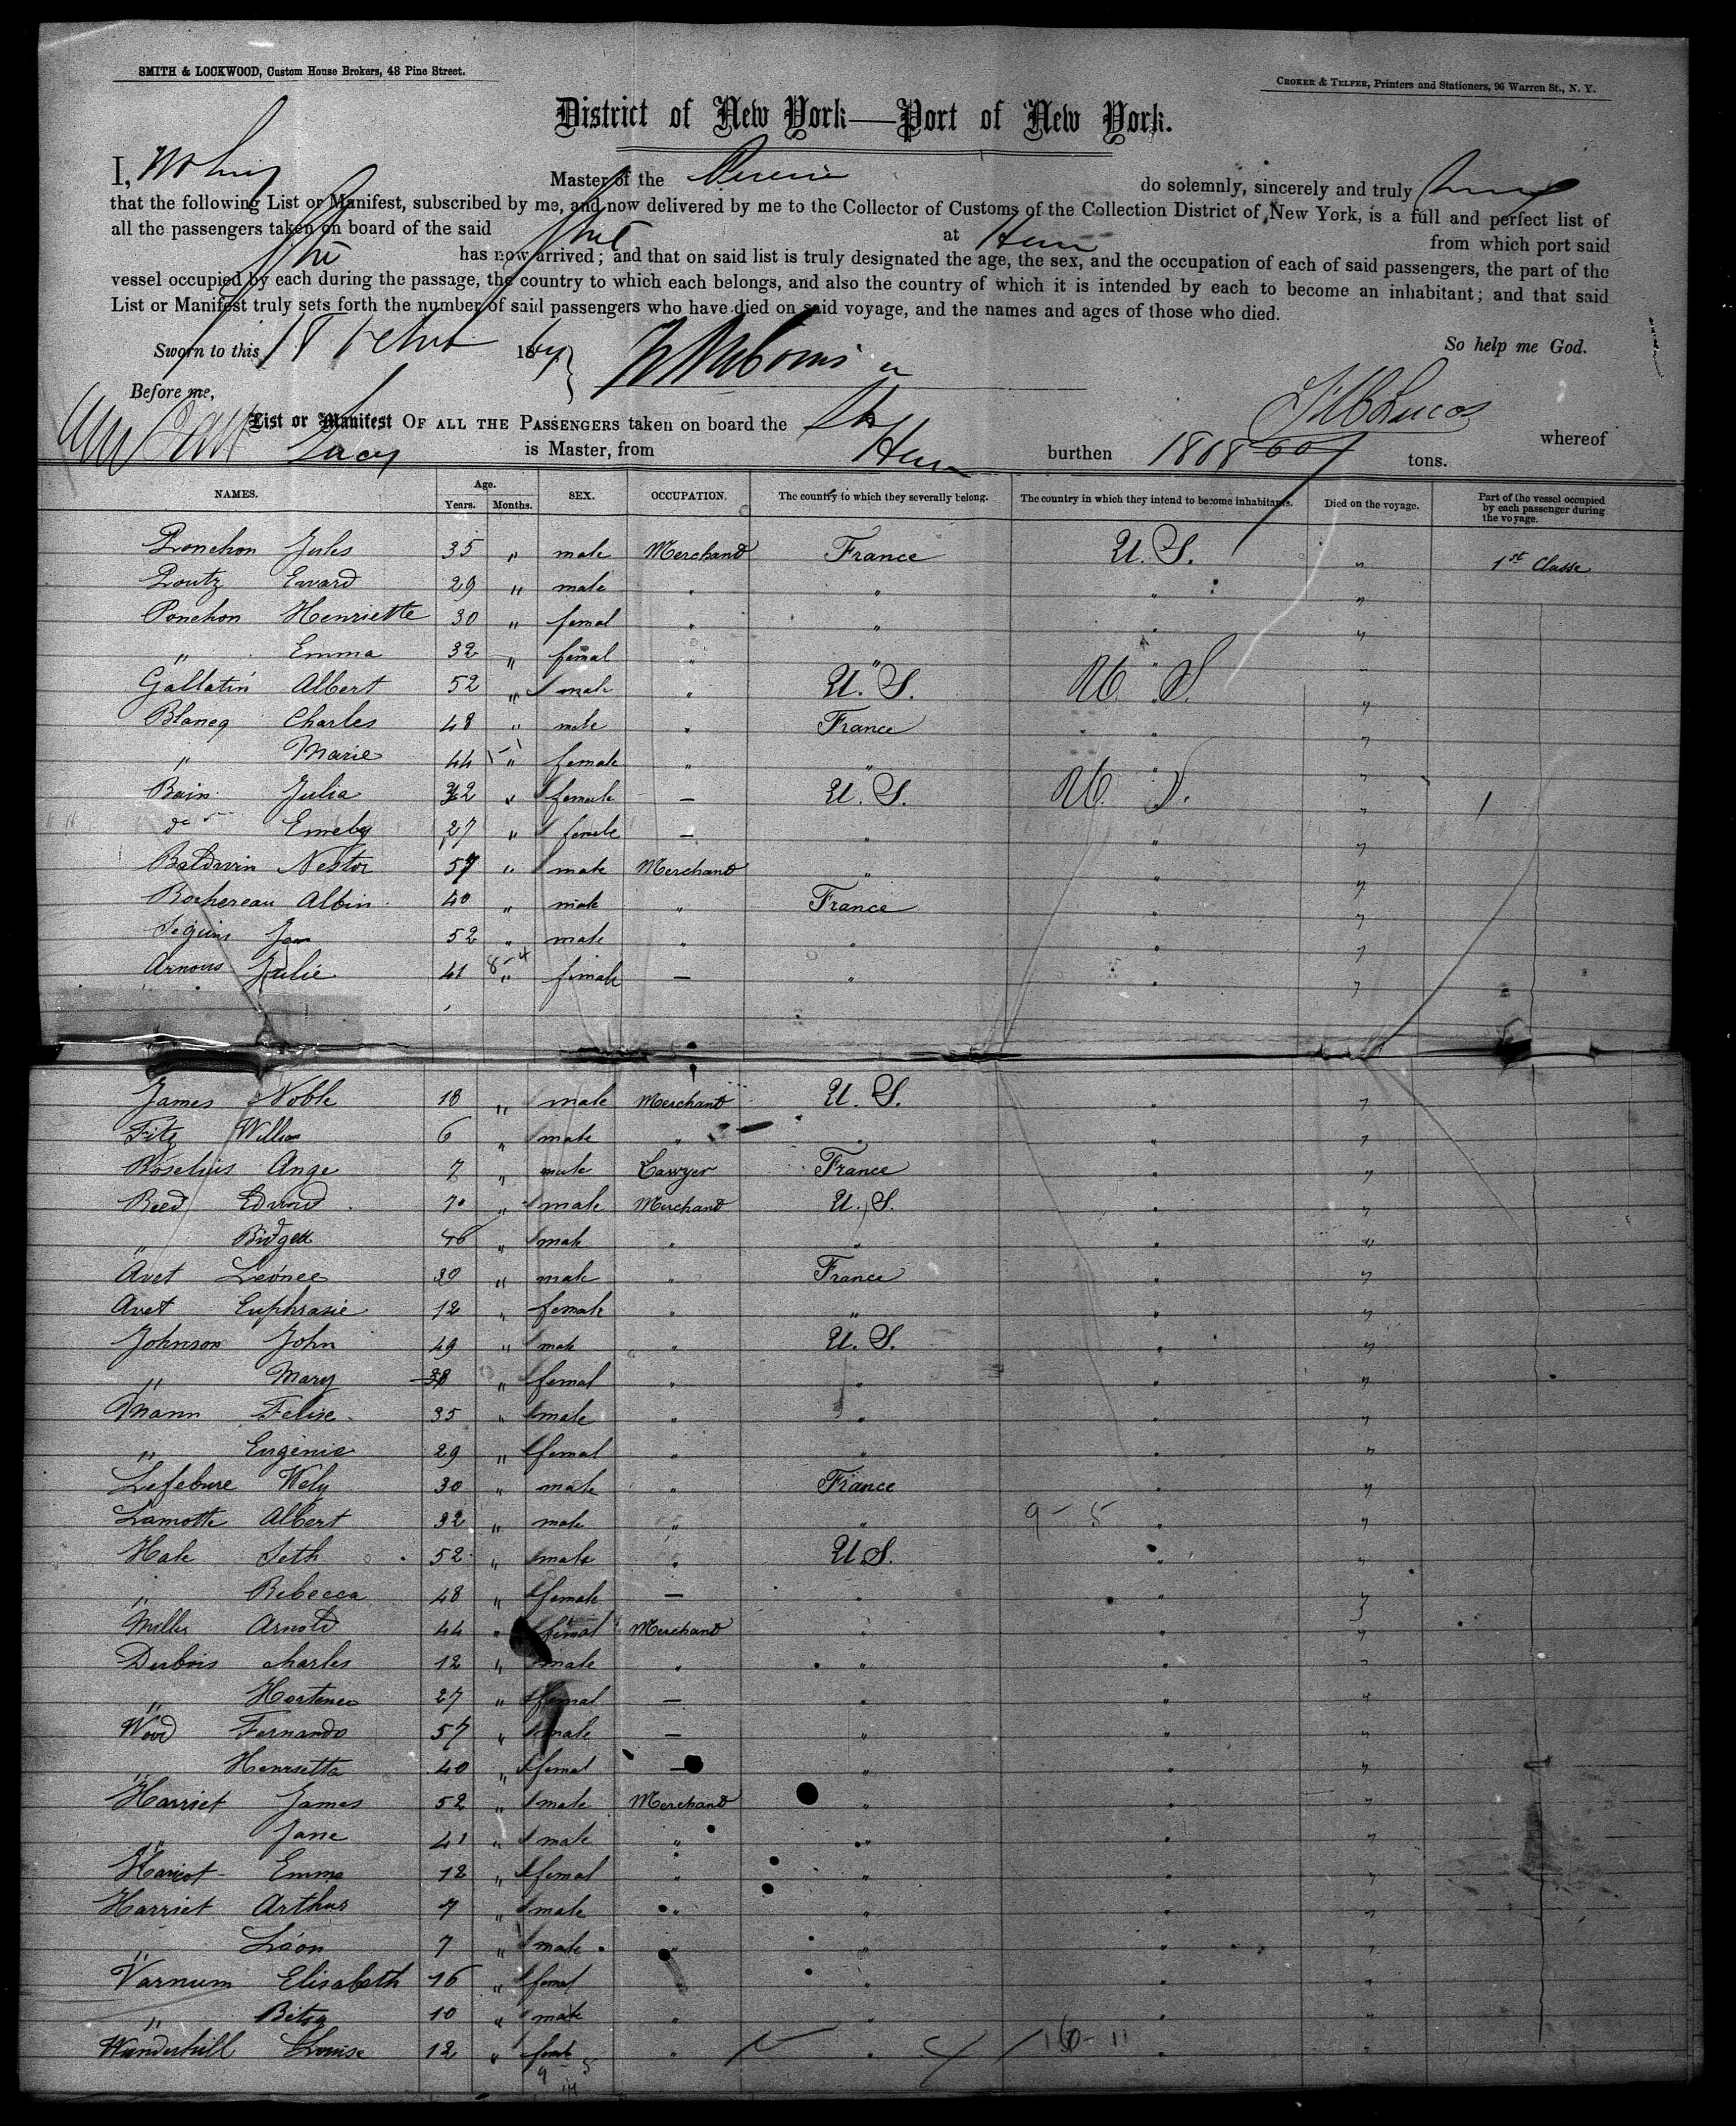 SMITH & LOCKWOOD, Custom House Brokers, 48 Pine Street.
CROKER & TELFER, Printers and Stationers, 96 Warren St., N. Y.
District of New York—Port of New York.
I, Master of the do solemnly, sincerely and truly
that the following List or Manifest, subscribed by me, and now delivered by me to the Collector of Customs of the Collection District of New York, is a full and perfect list of
all the passengers taken on board of the said at from which port said
has now arrived; and that on said list is truly designated the age, the sex, and the occupation of each of said passengers, the part of the
vessel occupied by each during the passage, the country to which each belongs, and also the country of which it is intended by each to become an inhabitant; and that said
List or Manifest truly sets forth the number of said passengers who have died on said voyage, and the names and ages of those who died.
Sworn to this 18 18 So help me God.
Before me,
List or Manifest OF ALL THE PASSENGERS taken on board the whereof
is Master, from burthen tons.
NAMES. Age. Years. Months. SEX. OCCUPATION. The country to which they severally belong. The country in which they intend to become inhabitants. Died on the voyage. Part of the vessel occupied by each passenger during the voyage.
Ponchon Jules 35 " male Merchand France U. S. " 1st Classe
Poutz Evvard 29 " male " " " "
Ponchon Henriette 30 " femal " " " "
" Emma 32 " femal " " " "
Gallatin Albert 52 " male " U. S. U. S. "
Blancq Charles 48 " male " France " "
" Marie 44 " female " " " "
Bain Julia 32 " female — U. S. U. S. "
do Emeby 27 " female — " " "
Baldwin Nestor 57 " male Merchand " " "
Rochereau Albin 40 " male " France " "
Seguin Jean 52 " male " " " "
Arnous Julie 41 " female — " " "
James Noble 18 " male Merchand U. S. " "
Fitz William 6 " male " " " "
Roselius Ange 7 " male Lawyer France " "
Reed Edward 70 " male Merchand U. S. " "
" Bidget 46 " male " " " "
Avet Léonce 30 " male " France " "
Avet Euphrasie 12 " female " " " "
Johnson John 49 " male " U. S. " "
" Mary 38 " femal " " " "
Mann Felise 35 " male " " " "
" Eugénie 29 " femal " " " "
Lefebure Wely 30 " male " France " "
Lamotte Albert 32 " male " " 9 - 5 " "
Hale Seth 52 " male " U. S. " "
" Rebecca 48 " female — " " "
Miller Arnold 44 " femal Merchand " " "
Dubois charles 12 " male " " " "
" Hortence 27 " femal — " " "
Wood Fernando 57 " male — " " "
" Henrietta 40 " femal — " " "
Harriet James 52 " male Merchand " " "
" Jane 41 " male " " " "
Harriot Emma 12 " femal " " " "
Harriet Arthur 7 " male " " " "
" Léon 7 " male " " " "
Varnum Elisabeth 16 " femal " " " "
" Betsy 10 " male " " " "
Wanderhill Louise 12 " female " " " "